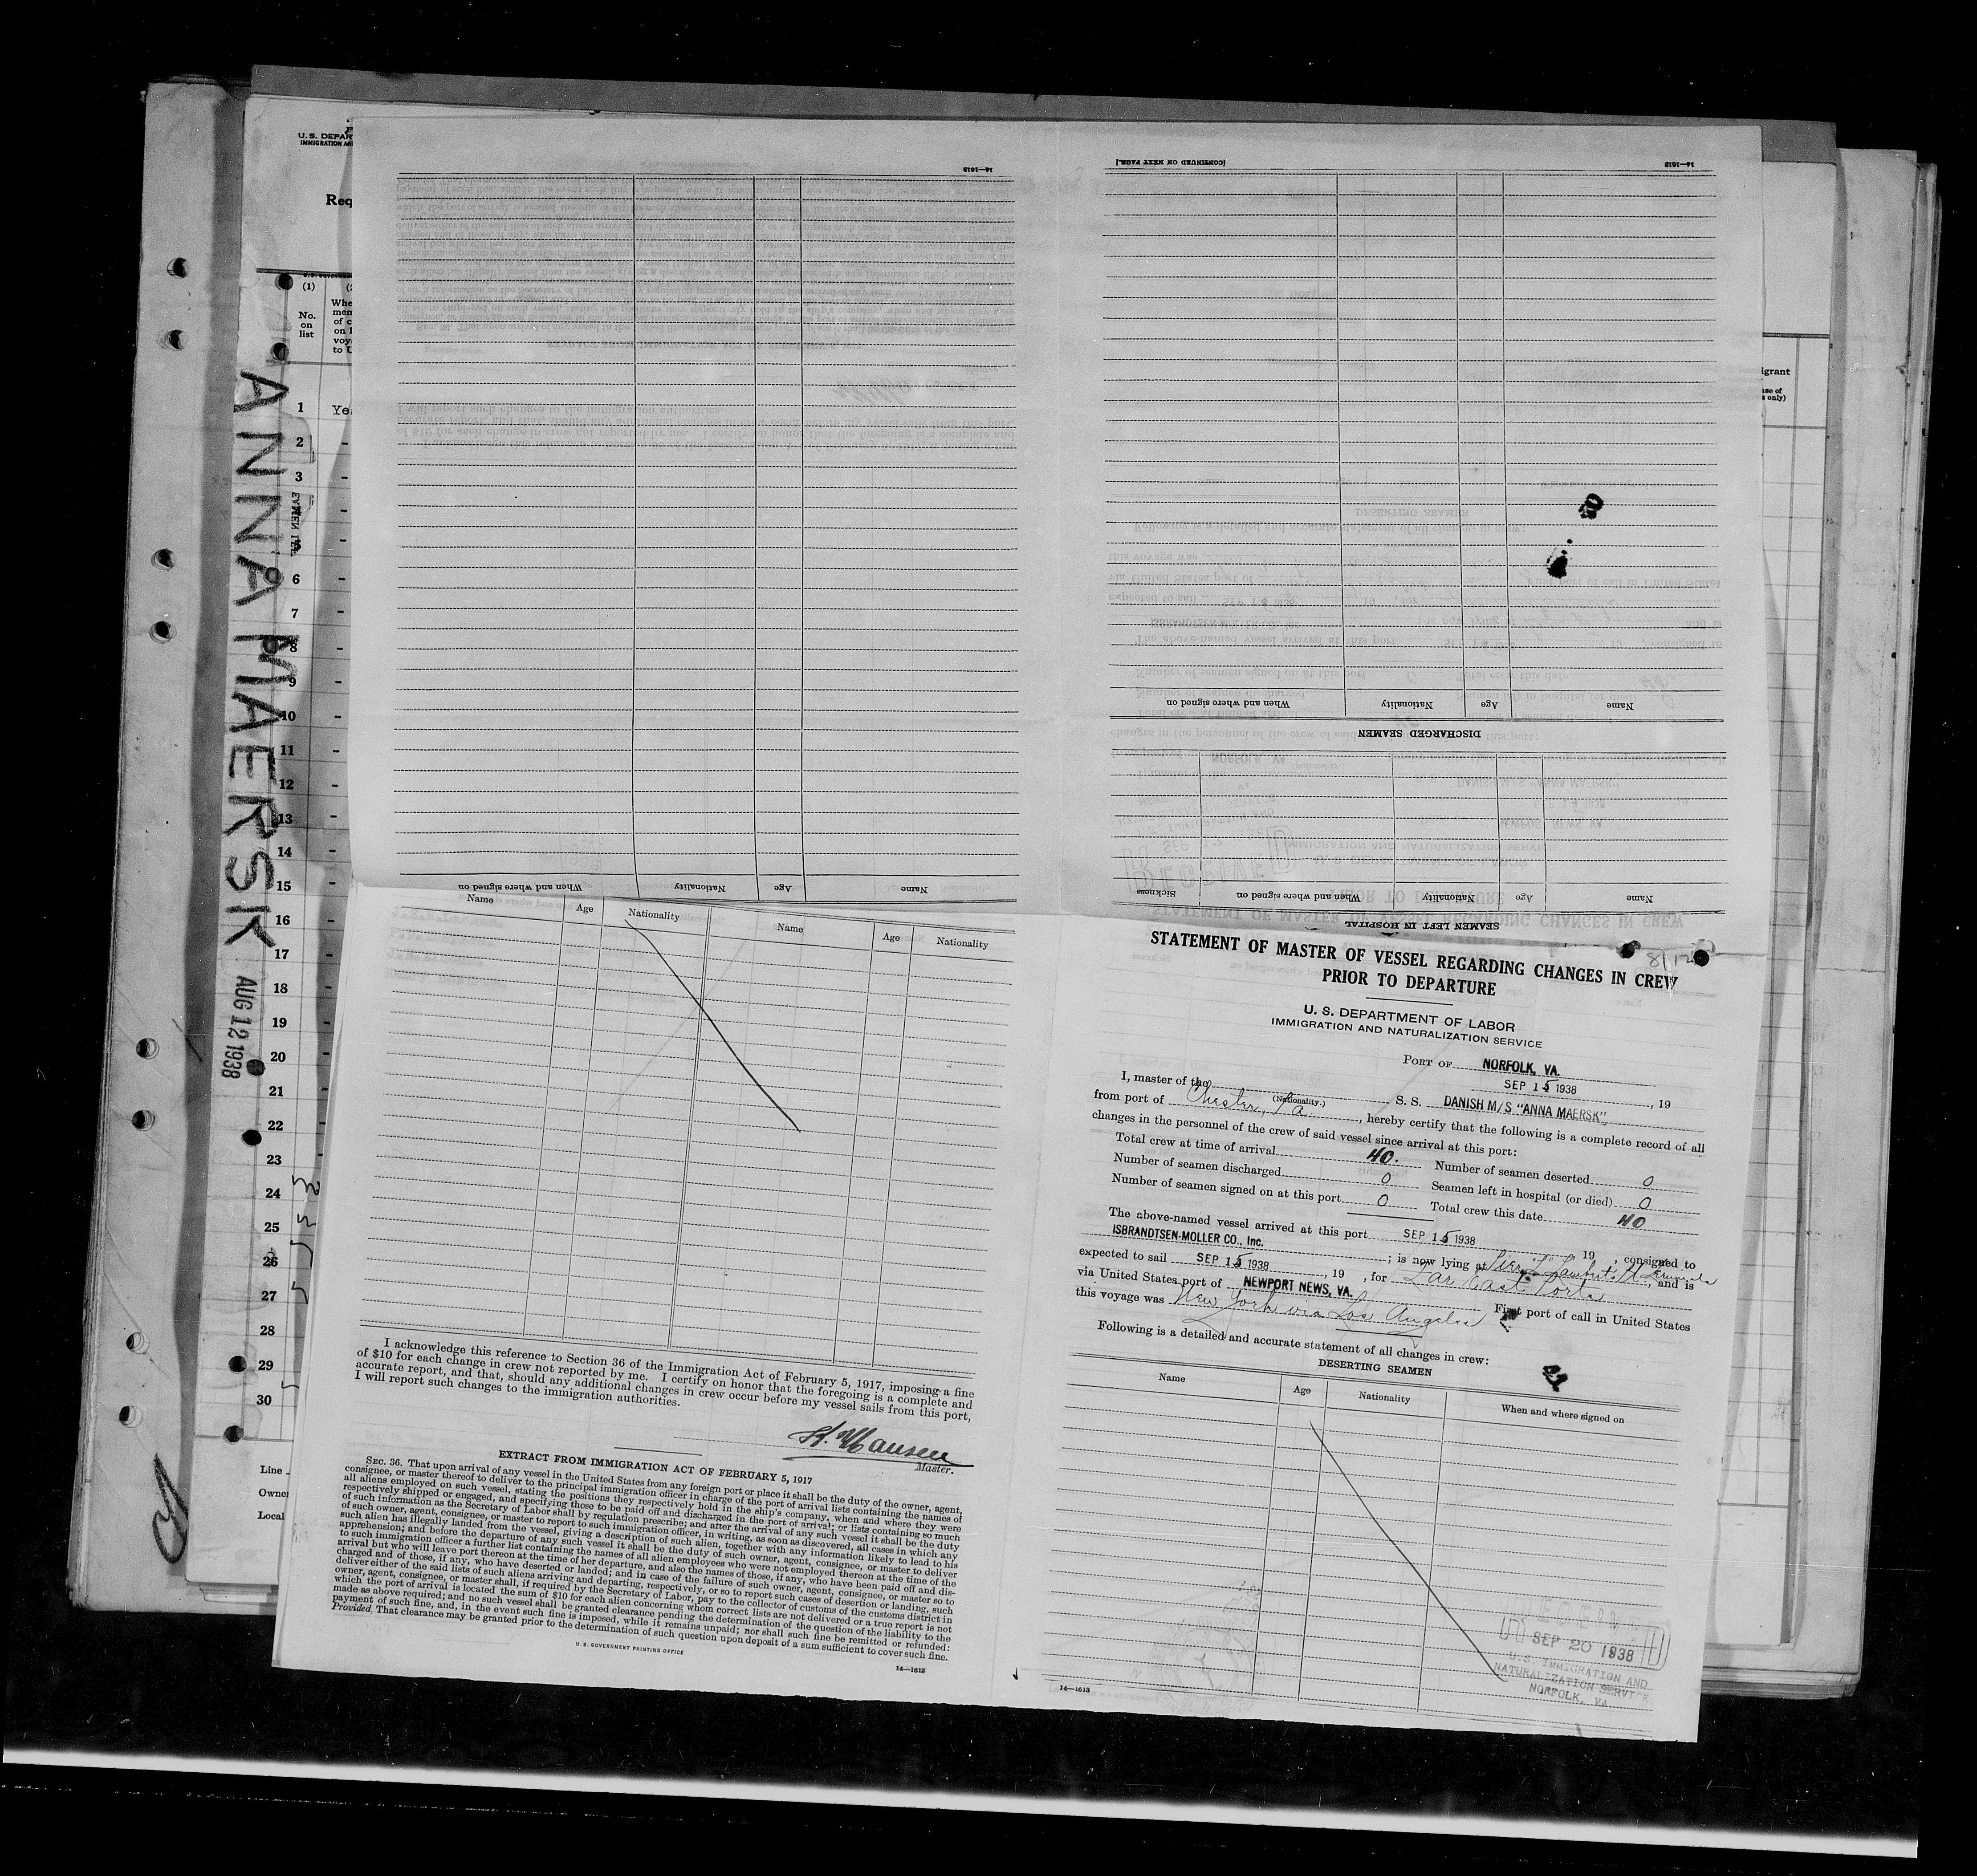 U. S. DEPAR
IMMIGRATION A
Req
(1)
No.
on
list
Whe
men
of c
on l
voy
to U
igrant
se of
s only)
1 Ye
2 -
3 -
-
6 -
7 -
8 -
9 -
10 -
11 -
12 -
13 -
14 -
15 -
16 -
17
18
19
20
21
22
23
24
25
26
27
28
29
30
Line
Owner
Local
ANNA MAERSK AUG 12 1938
14—1613
Name Age Nationality When and where signed on
[CONTINUED ON NEXT PAGE.] 14—1613
DISCHARGED SEAMEN
Name Age Nationality When and where signed on
SEAMEN LEFT IN HOSPITAL
Name Age Nationality When and where signed on Sickness
Name Age Nationality Name Age Nationality
I acknowledge this reference to Section 36 of the Immigration Act of February 5, 1917, imposing a fine
of $10 for each change in crew not reported by me. I certify on honor that the foregoing is a complete and
accurate report, and that, should any additional changes in crew occur before my vessel sails from this port,
I will report such changes to the immigration authorities.
Hansen
Master.
EXTRACT FROM IMMIGRATION ACT OF FEBRUARY 5, 1917
SEC. 36. That upon arrival of any vessel in the United States from any foreign port or place it shall be the duty of the owner, agent,
consignee, or master thereof to deliver to the principal immigration officer in charge of the port of arrival lists containing the names of
all aliens employed on such vessel, stating the positions they respectively hold in the ship's company, when and where they were
respectively shipped or engaged, and specifying those to be paid off and discharged in the port of arrival; or lists containing so much
of such information as the Secretary of Labor shall by regulation prescribe; and after the arrival of any such vessel it shall be the duty
of such owner, agent, consignee, or master to report to such immigration officer, in writing, as soon as discovered, all cases in which any
such alien has illegally landed from the vessel, giving a description of such alien, together with any information likely to lead to his
apprehension; and before the departure of any such vessel it shall be the duty of such owner, agent, consignee, or master to deliver
to such immigration officer a further list containing the names of all alien employees who were not employed thereon at the time of the
arrival but who will leave port thereon at the time of her departure, and also the names of those, if any, who have been paid off and dis-
charged and of those, if any, who have deserted or landed; and in case of the failure of such owner, agent, consignee, or master so to
deliver either of the said lists of such aliens arriving and departing, respectively, or so to report such cases of desertion or landing, such
owner, agent, consignee, or master shall, if required by the Secretary of Labor, pay to the collector of customs of the customs district in
which the port of arrival is located the sum of $10 for each alien concerning whom correct lists are not delivered or a true report is not
made as above required; and no such vessel shall be granted clearance pending the determination of the question of the liability to the
payment of such fine, and, in the event such fine is imposed, while it remains unpaid; nor shall such fine be remitted or refunded:
Provided, That clearance may be granted prior to the determination of such question upon deposit of a sum sufficient to cover such fine.
U. S. GOVERNMENT PRINTING OFFICE
14—1613
STATEMENT OF MASTER OF VESSEL REGARDING CHANGES IN CREW
PRIOR TO DEPARTURE
U. S. DEPARTMENT OF LABOR
IMMIGRATION AND NATURALIZATION SERVICE
PORT OF NORFOLK, VA.
SEP 15 1938, 19
I, master of the (Nationality.) S. S. DANISH M/S "ANNA MAERSK",
from port of Chester, Pa., hereby certify that the following is a complete record of all
changes in the personnel of the crew of said vessel since arrival at this port:
Total crew at time of arrival 40. Number of seamen deserted 0
Number of seamen discharged 0 Seamen left in hospital (or died) 0
Number of seamen signed on at this port 0 Total crew this date 40
The above-named vessel arrived at this port SEP 15 1938 19 , consigned to
ISBRANDTSEN-MOLLER CO., Inc. ; is now lying at Pier and is
expected to sail SEP 15 1938, 19 , for Far East Ports
via United States port of NEWPORT NEWS, VA. First port of call in United States
this voyage was New York via Los Angeles
Following is a detailed and accurate statement of all changes in crew:
DESERTING SEAMEN
Name Age Nationality When and where signed on
RECEIVED
SEP 20 1938
U.S. IMMIGRATION AND
NATURALIZATION SERVICE
NORFOLK, VA
14—1613